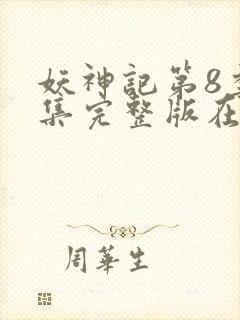 妖神記第8季
集完整版在
周華生